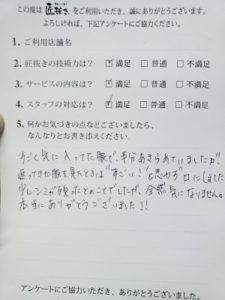 この度は匠抜きをご利用いただき、誠にありがとうございます。
よろしければ、下記アンケートにご協力ください。
1. ご利用店舗名
2. 匠抜きの技術力は? ☑ 満足 ☐ 普通 ☐ 不満足
3. サービスの内容は? ☑ 満足 ☐ 普通 ☐ 不満足
4. スタッフの対応は? ☑ 満足 ☐ 普通 ☐ 不満足
5. 何かお気づきの点などございましたら、
なんなりとお書き添えください。
すごく気に入ってた服で、半分あきらめていましたが、
返ってきた服を見たときは"すごい!"と思わず口にしました
少しシミが残ったとのことでしたが、全然気になりません。
本当にありがとうございました!!
アンケートにご協力いただき、ありがとうございました。